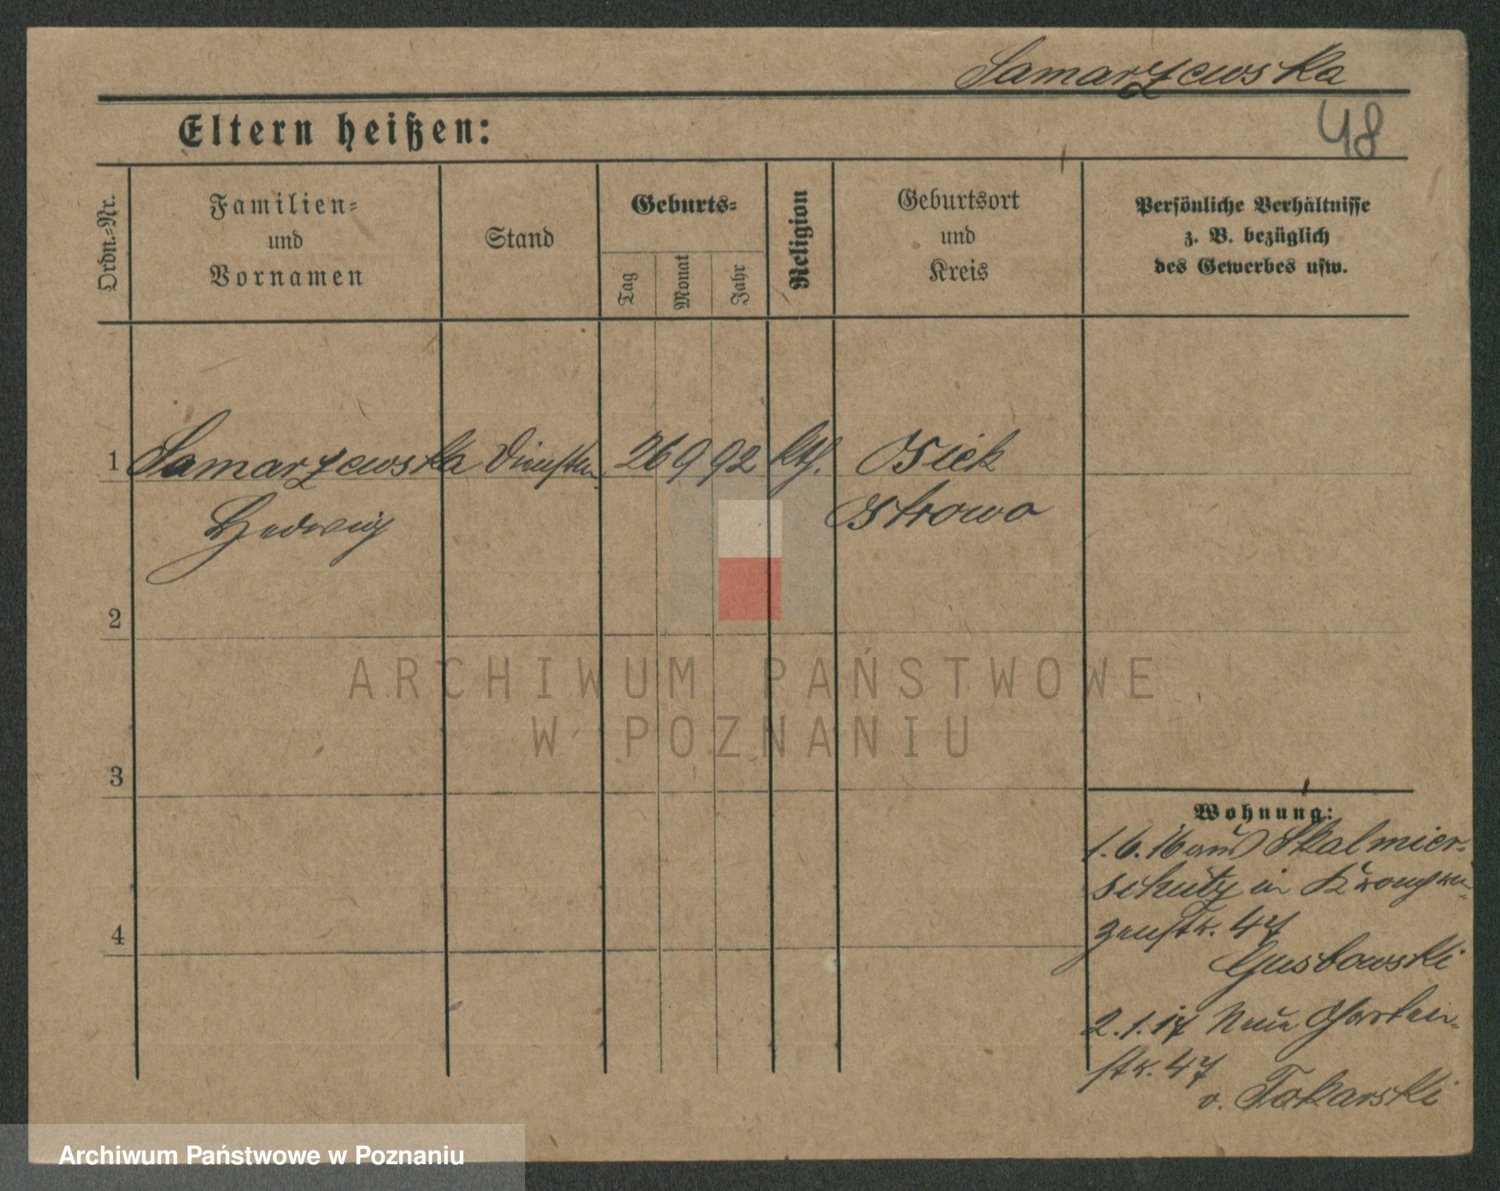 Samarzewska
48
Eltern heißen:
Ordn.-Nr.
Familien-
und
Vornamen
Stand
Geburts-
Tag
Monat
Jahr
Religion
Geburtsort
und
Kreis
Persönliche Verhältnisse
z. B. bezüglich
des Gewerbes usw.
1 Samarzewska 26 9 92 kth. Osiek
Hedwig Ostrowo
2
3
4
Wohnung:
1.6.16 aus Skalmier-
schütz in Kronprin-
zenstr. 47
Gustowski
2.1.17 Neue Garten-
str. 47
v. Tokarski
ARCHIWUM PAŃSTWOWE
W POZNANIU
Archiwum Państwowe w Poznaniu